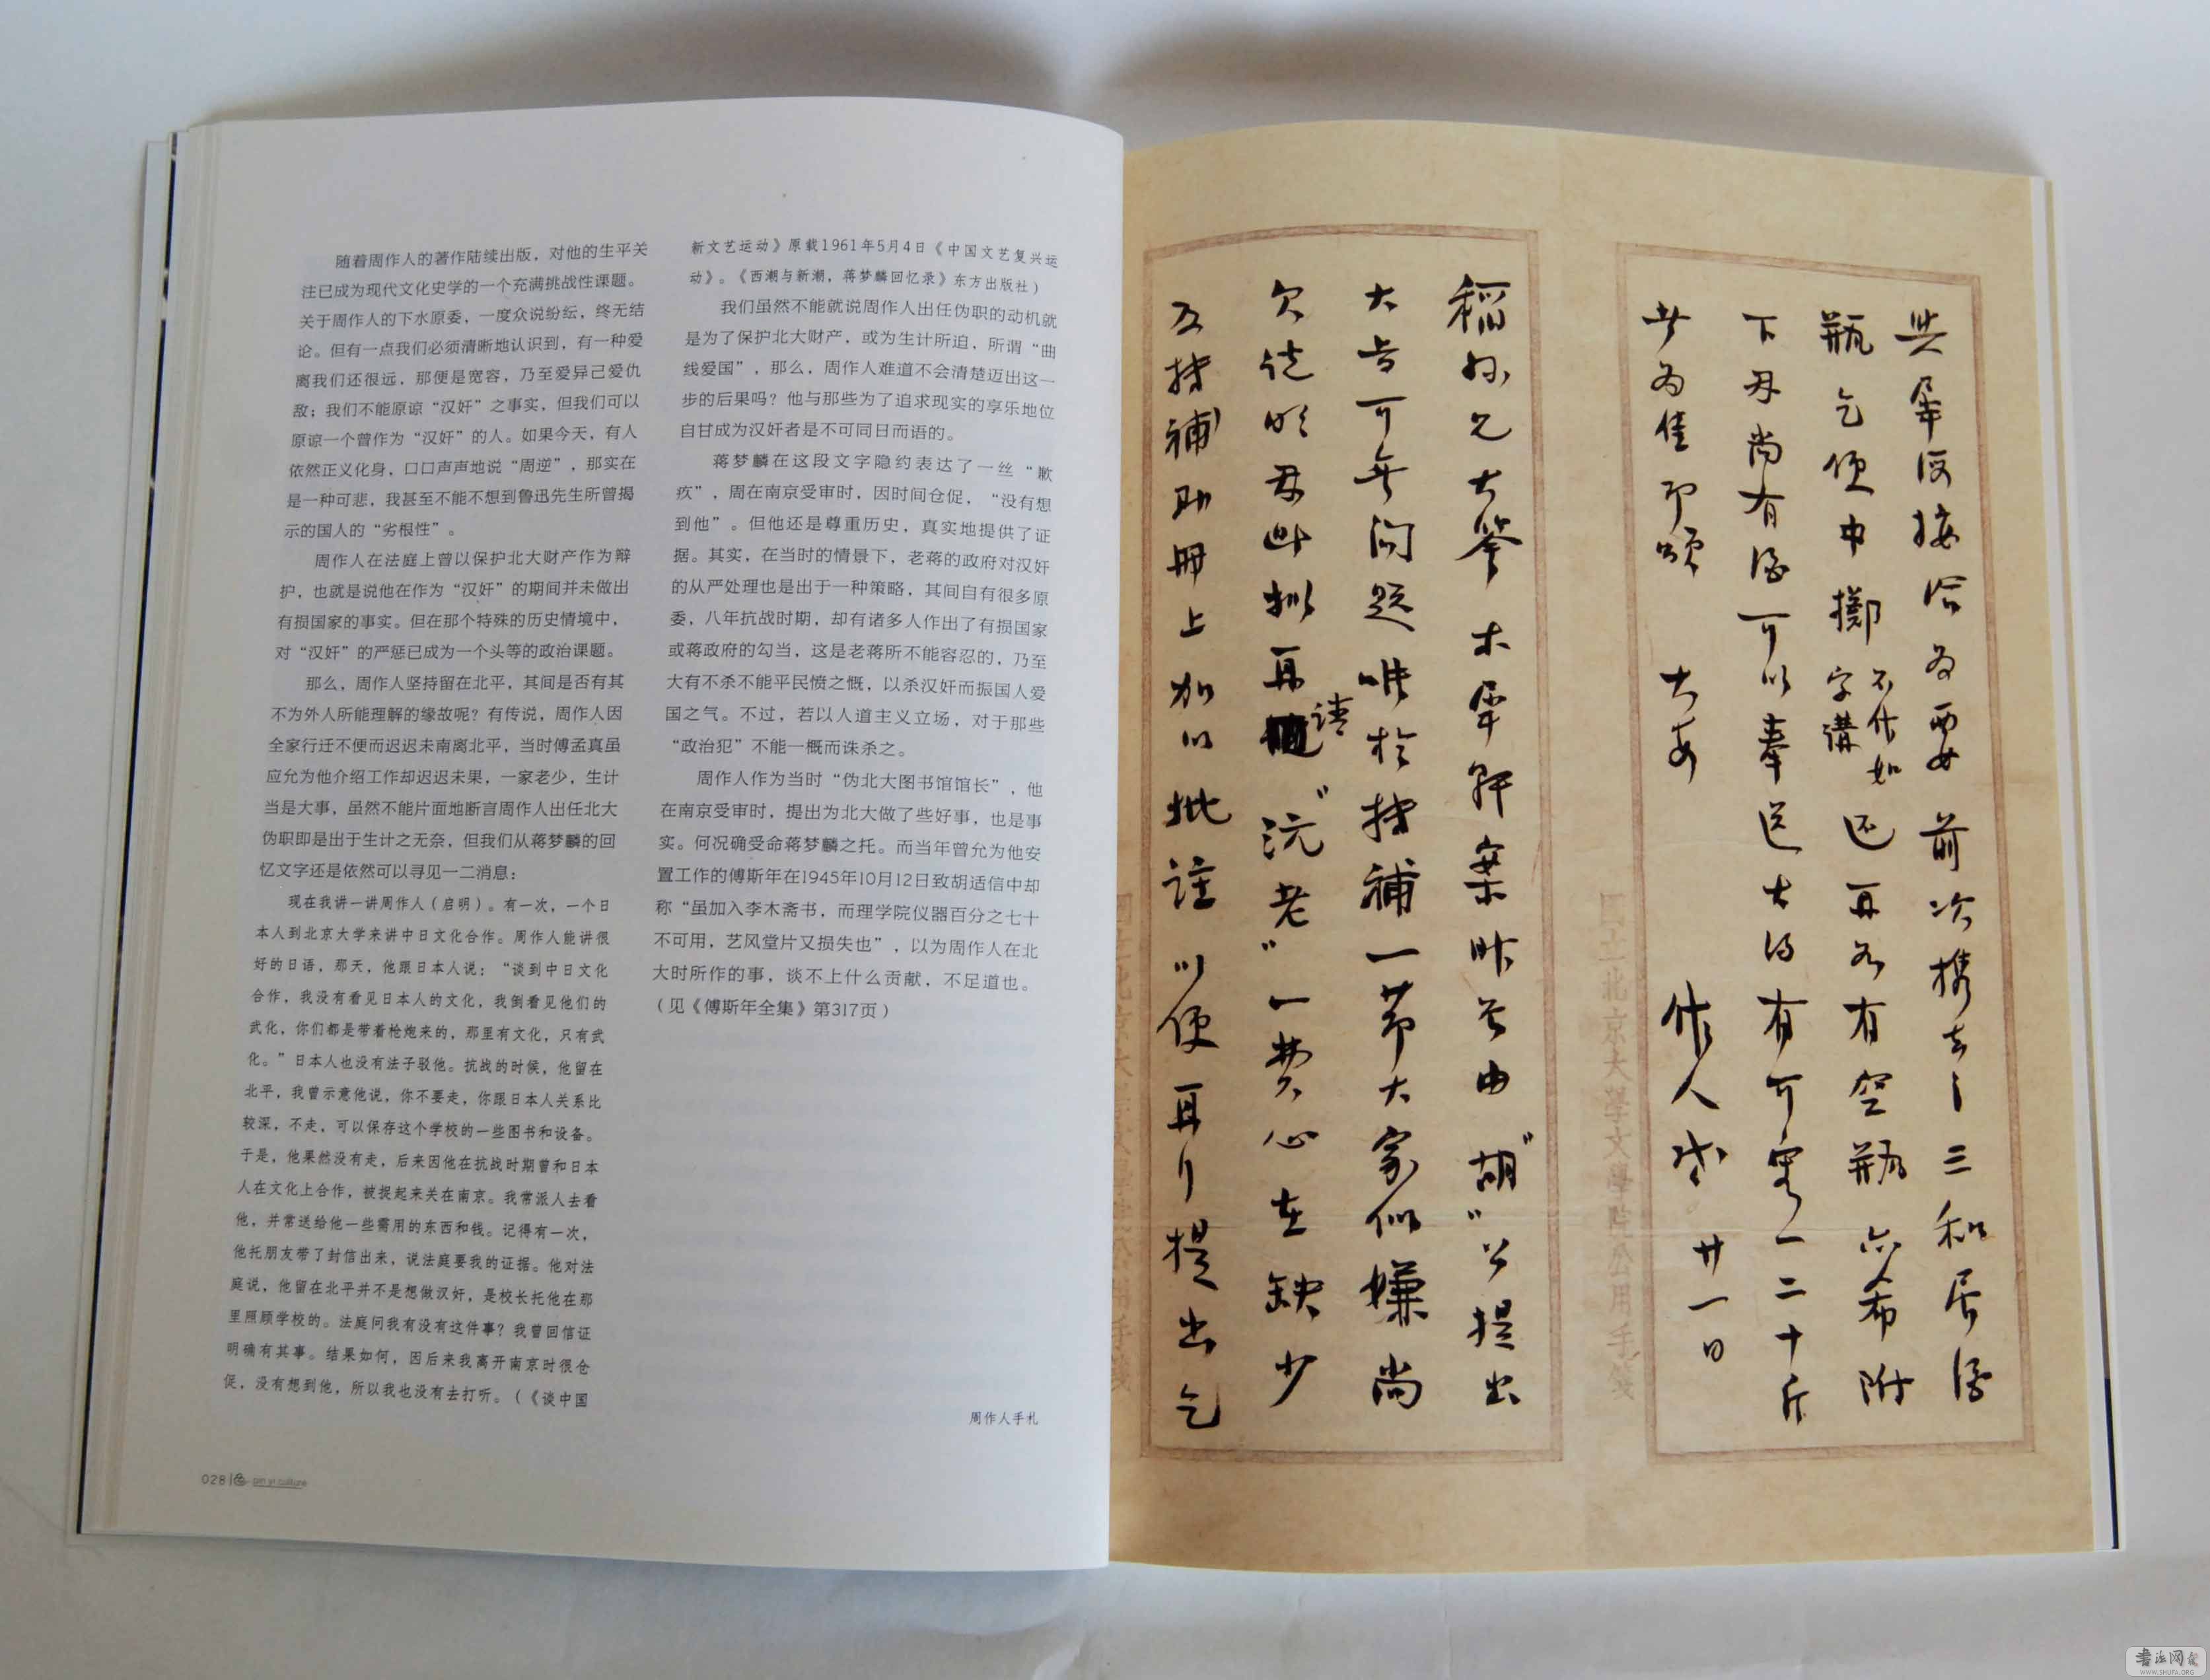 随着周作人的著作陆续出版，对他的生平关
注已成为现代文化史学的一个充满挑战性课题。
关于周作人的下水原委，一度众说纷纭，终无结
论。但有一点我们必须清晰地认识到，有一种爱
离我们还很远，那便是宽容，乃至爱异己爱仇
敌；我们不能原谅“汉奸”之事实，但我们可以
原谅一个曾作为“汉奸”的人。如果今天，有人
依然正义化身，口口声声地说“周逆”，那实在
是一种可悲，我甚至不能不想到鲁迅先生所曾揭
示的国人的“劣根性”。
周作人在法庭上曾以保护北大财产作为辩
护，也就是说他在作为“汉奸”的期间并未做出
有损国家的事实。但在那个特殊的历史情境中，
对“汉奸”的严惩已成为一个头等的政治课题。
那么，周作人坚持留在北平，其间是否有其
不为外人所能理解的缘故呢？有传说，周作人因
全家行迁不便而迟迟未南离北平，当时傅孟真虽
应允为他介绍工作却迟迟未果，一家老少，生计
当是大事，虽然不能片面地断言周作人出任北大
伪职即是出于生计之无奈，但我们从蒋梦麟的回
忆文字还是依然可以寻见一二消息：
现在我讲一讲周作人（启明）。有一次，一个日
本人到北京大学来讲中日文化合作。周作人能讲很
好的日语，那天，他跟日本人说：“谈到中日文化
合作，我没有看见日本人的文化，我倒看见他们的
武化，你们都是带着枪炮来的，那里有文化，只有武
化。”日本人也没有法子驳他。抗战的时候，他留在
北平，我曾示意他说，你不要走，你跟日本人关系比
较深，不走，可以保存这个学校的一些图书和设备。
于是，他果然没有走，后来因他在抗战时期曾和日本
人在文化上合作，被捉起来关在南京。我常派人去看
他，并常送给他一些需用的东西和钱。记得有一次，
他托朋友带了封信出来，说法庭要我的证据。他对法
庭说，他留在北平并不是想做汉奸，是校长托他在那
里照顾学校的。法庭问我有没有这件事？我曾回信证
明确有其事。结果如何，因后来我离开南京时很仓
促，没有想到他，所以我也没有去打听。（《谈中国
新文艺运动》原载1961年5月4日《中国文艺复兴运
动》。《西潮与新潮，蒋梦麟回忆录》东方出版社）
我们虽然不能就说周作人出任伪职的动机就
是为了保护北大财产，或为生计所迫，所谓“曲
线爱国”，那么，周作人难道不会清楚迈出这一
步的后果吗？他与那些为了追求现实的享乐地位
自甘成为汉奸者是不可同日而语的。
蒋梦麟在这段文字隐约表达了一丝“歉
疚”，周在南京受审时，因时间仓促，“没有想
到他”。但他还是尊重历史，真实地提供了证
据。其实，在当时的情景下，老蒋的政府对汉奸
的从严处理也是出于一种策略，其间自有很多原
委，八年抗战时期，却有诸多人作出了有损国家
或蒋政府的勾当，这是老蒋所不能容忍的，乃至
大有不杀不能平民愤之慨，以杀汉奸而振国人爱
国之气。不过，若以人道主义立场，对于那些
“政治犯”不能一概而诛杀之。
周作人作为当时“伪北大图书馆馆长”，他
在南京受审时，提出为北大做了些好事，也是事
实。何况确受命蒋梦麟之托。而当年曾允为他安
置工作的傅斯年在1945年10月12日致胡适信中却
称“虽加入李木斋书，而理学院仪器百分之七十
不可用，艺风堂片又损失也”，以为周作人在北
大时所作的事，谈不上什么贡献，不足道也。
（见《傅斯年全集》第317页）
周作人手札
028
前次携去之三和居酒
瓶乞便中擲还再如有空瓶亦希附
下 尚有酒可以奉送大约有可 一二十斤
为佳即頌 大安 作人 廿一日
稻孙兄大鉴 木犀轩案昨曾由“胡”公提出
大旨可无问题唯于持補一节大家似嫌尚
欠 再請“沅老”一费心在缺少
及持補助冊上加以批注以便再行提出乞
北京大學文學院公用手箋
書法网
WWW.SHUFA.ORG